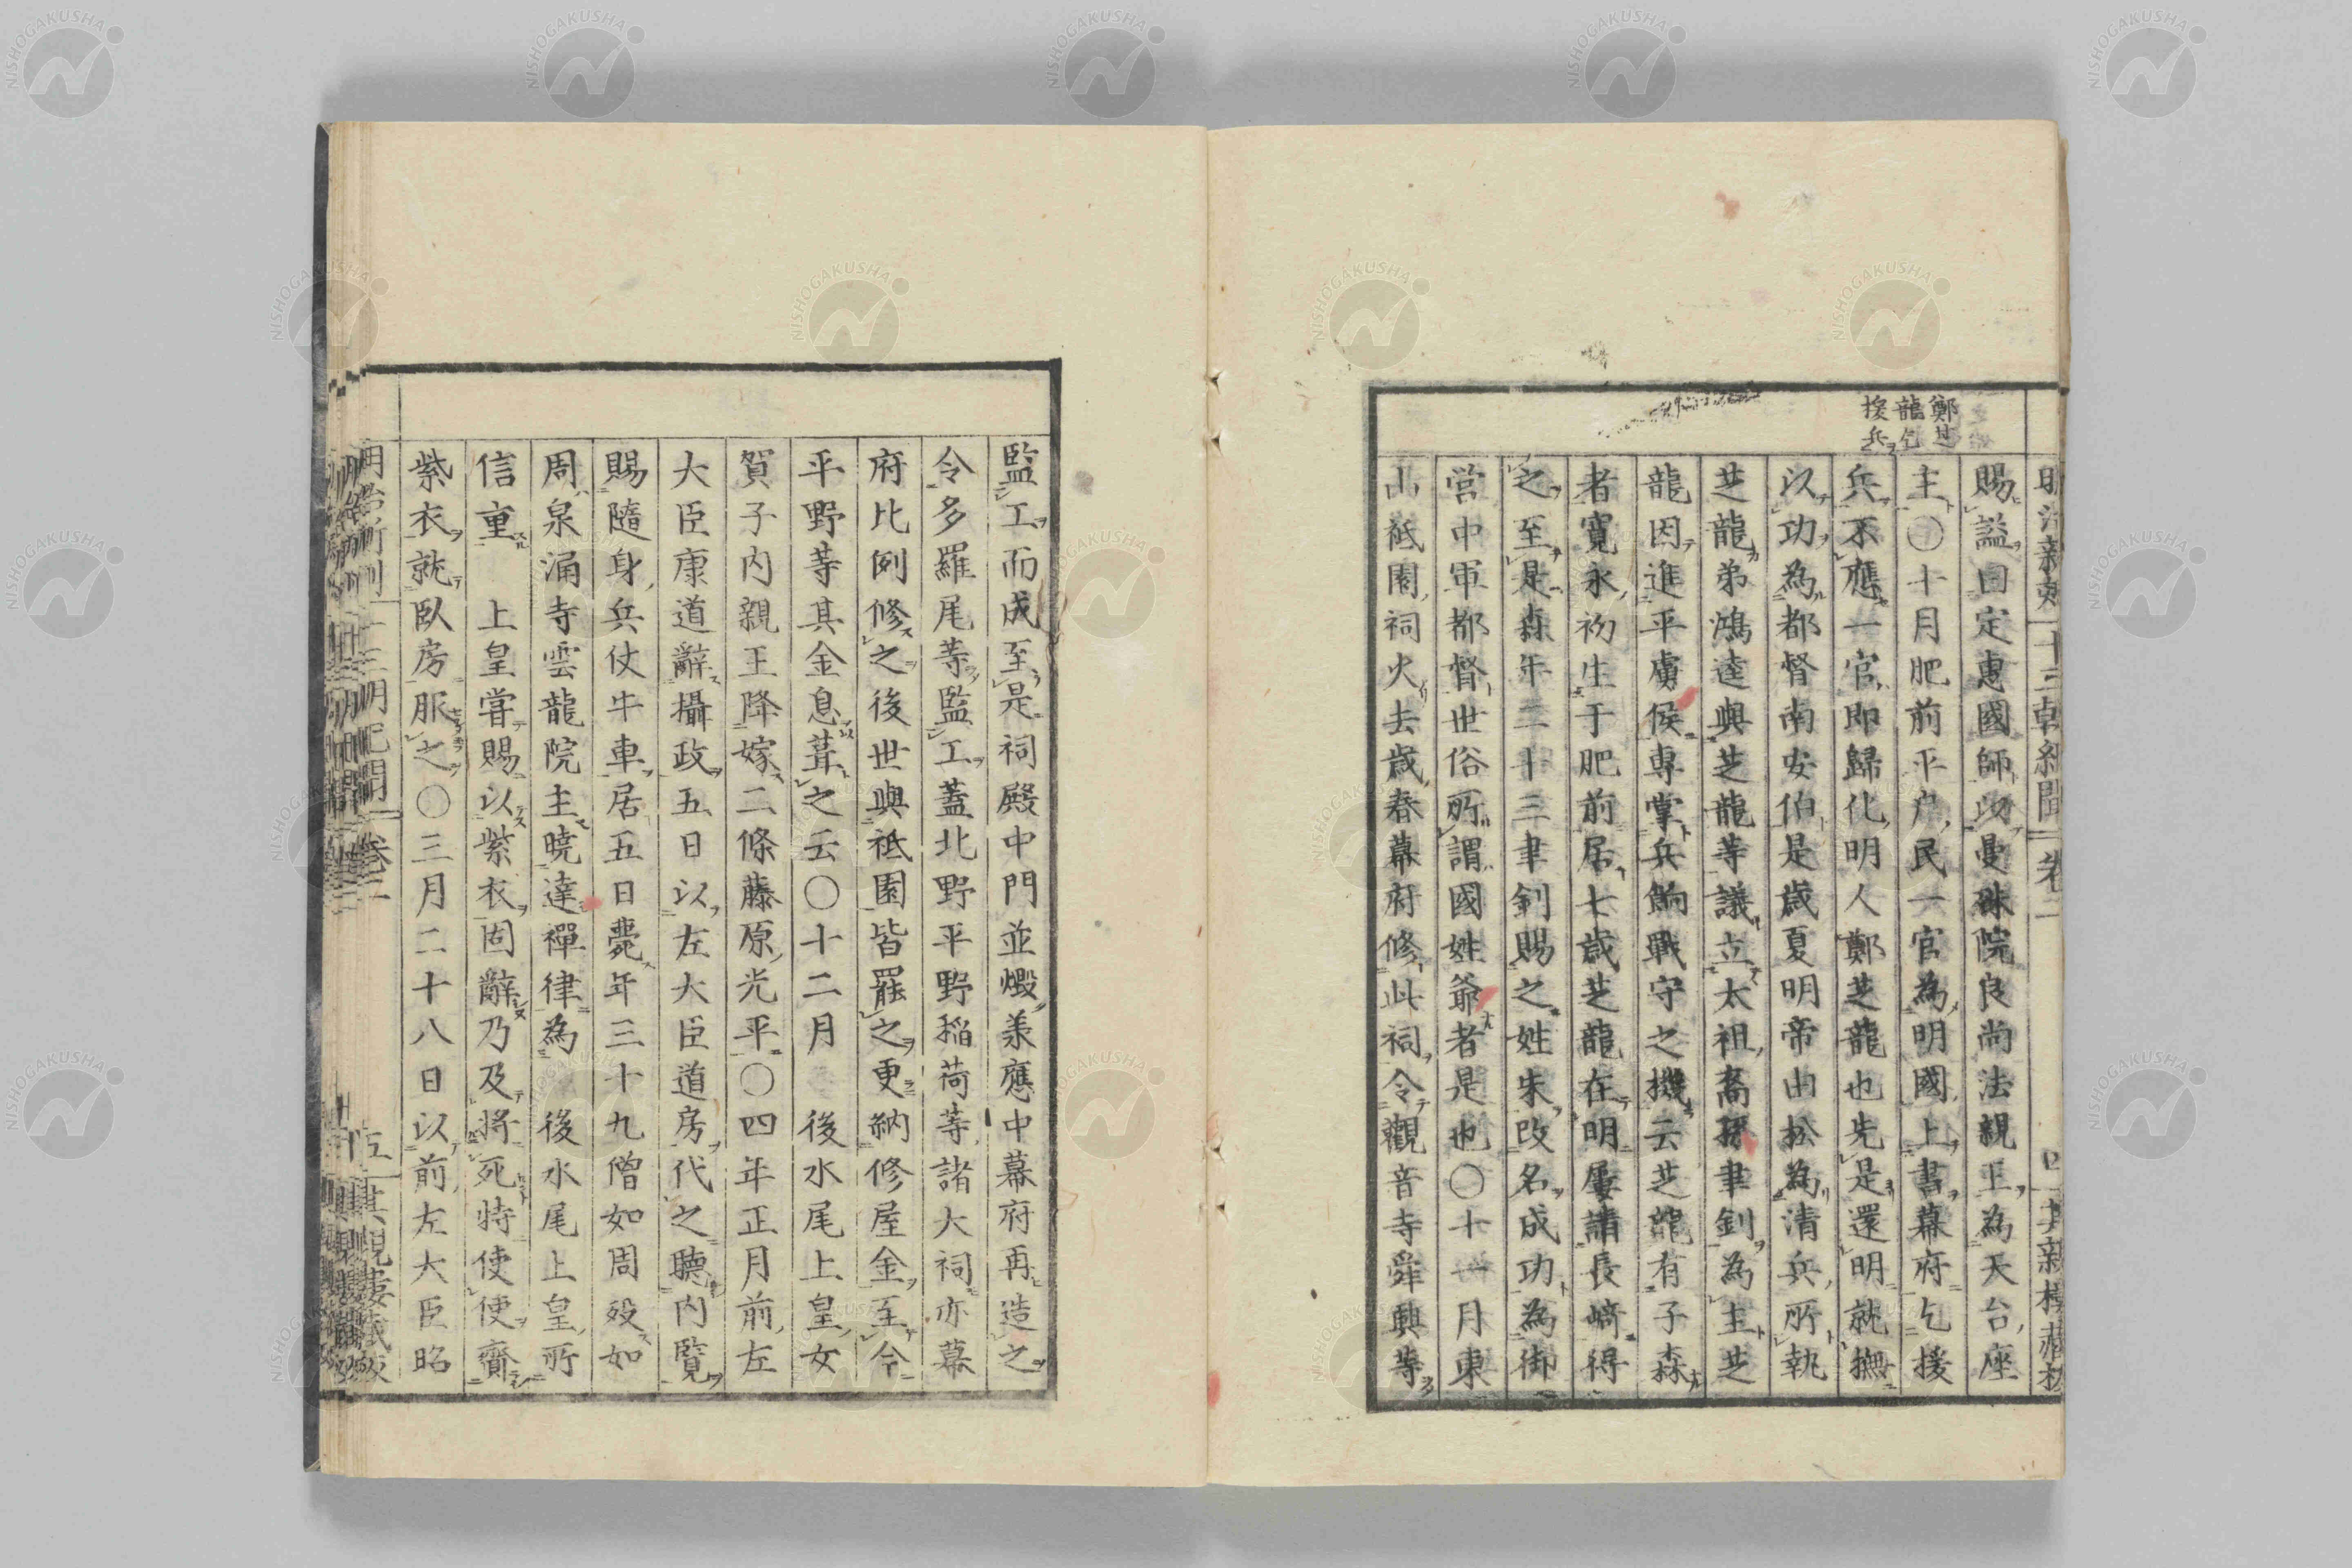 鄭芝
龍乞
援兵
賜謚曰定惠國師〇曼殊院良尚法親王為天台座
主〇十月肥前平户民一官為明國上書幕府乞援
兵不應一官即歸化明人鄭芝龍也先是還明就撫
以功為都督南安伯是歳夏明帝由松為清兵所執
芝龍弟鴻逵與芝龍等議立太祖裔孫聿釗為主芝
龍因進平虜侯專掌兵餉戰守之機云芝龍有子森
者寛永初生于肥前居七歳芝龍在明屢請長﨑得
之至是森年二十三聿釗賜之姓朱改名成功為御
営中軍都督世俗所謂國姓爺者是也〇十一月東
山祇園祠火去歳春幕府修此祠令觀音寺舜興等
監工而成至是祠殿中門並燬羕應中幕府再造之
令多羅尾等監工蓋北野平野稲荷等諸大祠亦幕
府比例修之後世與祇園皆罷之更納修屋金至今
平野等其金息葺之云〇十二月 後水尾上皇女
賀子内親王降嫁二條藤原光平〇四年正月前左
大臣康道辭攝政五日以左大臣道房代之聴内覽
賜隨身兵仗牛車居五日薨年三十九僧如周歿如
周泉涌寺雲龍院主曉達禪律為 後水尾上皇所
信重 上皇嘗賜以紫衣固辭乃及将死特使使齎
紫衣就臥房服之〇三月二十八日以前左大臣昭